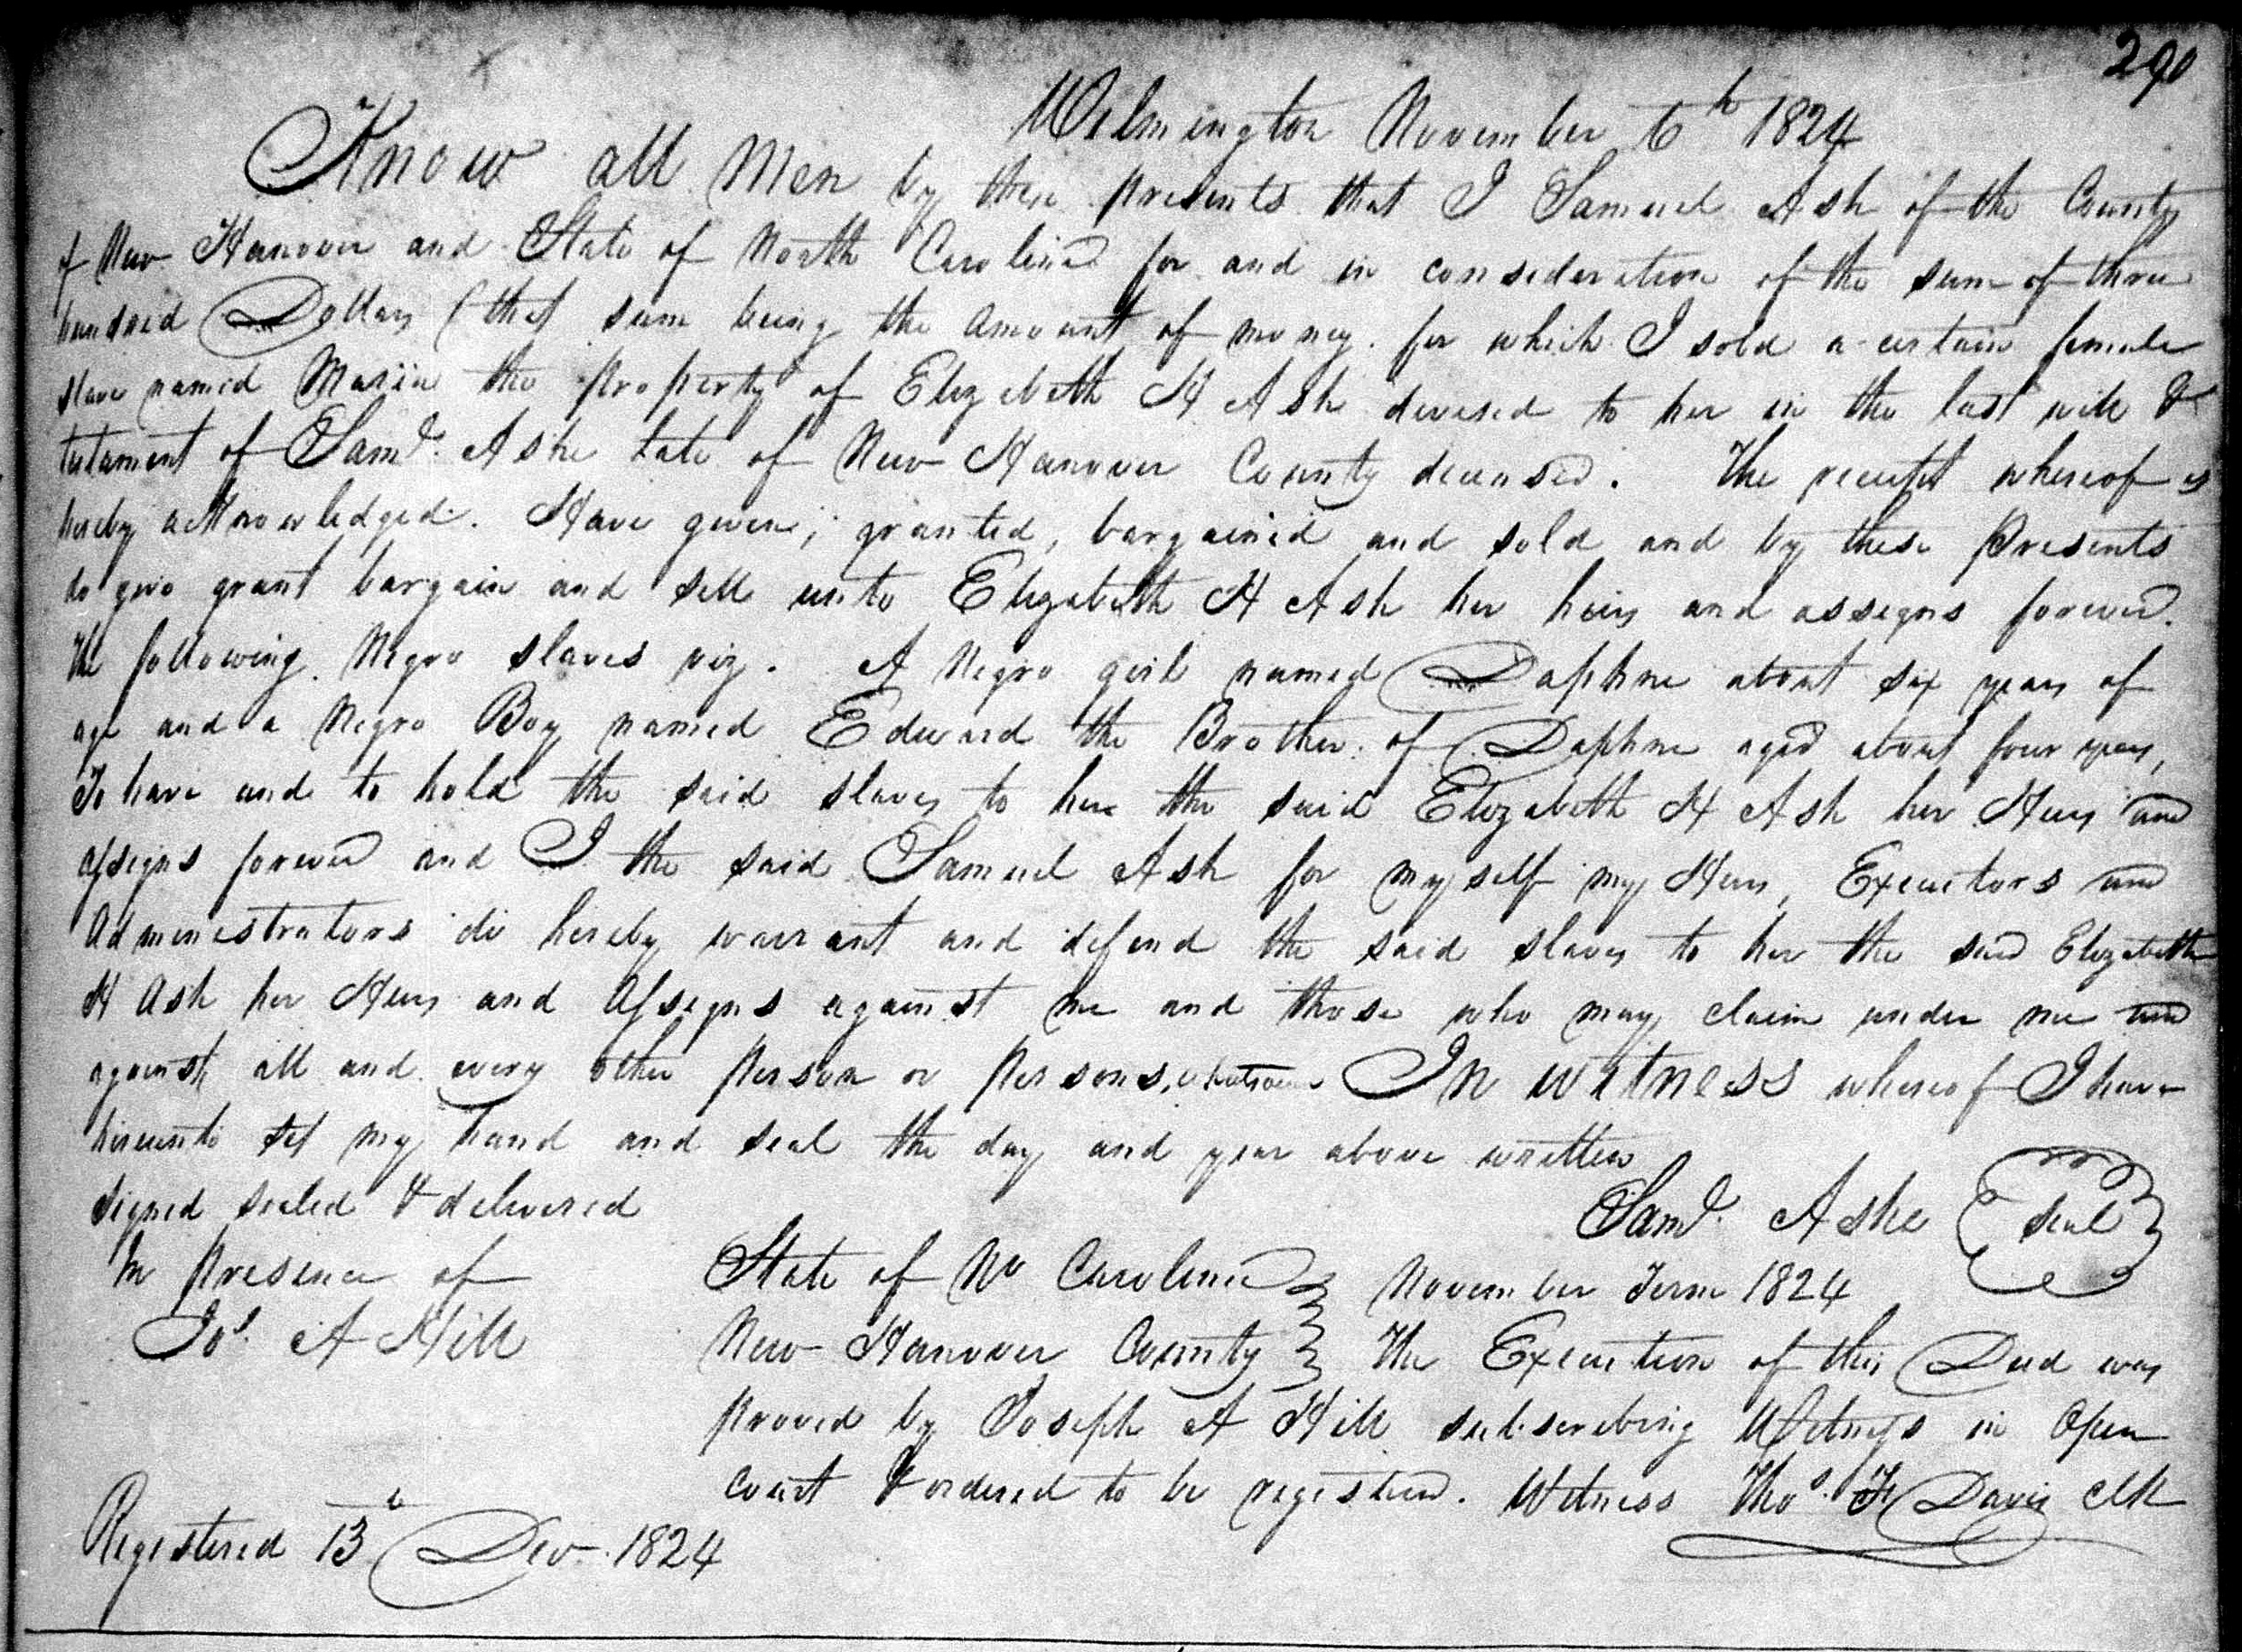 290
Wilmington November 6th 1824
Know all Men by these presents that I Samuel Ash of the County
of New Hanover and State of North Carolina for and in consideration of the sum of three
hundred Dollars (that sum being the amount of money for which I sold a certain female
slave named Maria the property of Elizabeth H Ash devised to her in the last will &
testament of Saml. Ashe late of New Hanover County deceased. The receipt whereof is
hereby acknowledged. Have given, granted, bargained and sold and by these Presents
do give grant bargain and sell unto Elizabeth H Ash her heirs and assigns forever.
The following Negro slaves viz. A Negro girl named Daphne about six years of
age and a Negro Boy named Edward the Brother of Daphne aged about four years,
To have and to hold the said slaves to her the said Elizabeth H Ash her Heirs and
assigns forever and I the said Samuel Ash for myself my Heirs, Executors and
Administrators do hereby warrant and defend the said slaves to her the said Elizabeth
H Ash her Heirs and Assigns against me and those who may claim under me and
against all and every other Person or Persons, whatsoever In witness whereof I have
hereunto set my hand and seal the day and year above written
Signed sealed & delivered
Saml. Ashe seal
In Presence of
Jos. A Hill
State of No Carolina November Term 1824
New Hanover County The Execution of this Deed was
proved by Joseph A Hill subscribing Witness in Open
Court & ordered to be registered. Witness Thos. F Davis Clk
Registered 13th Decr. 1824